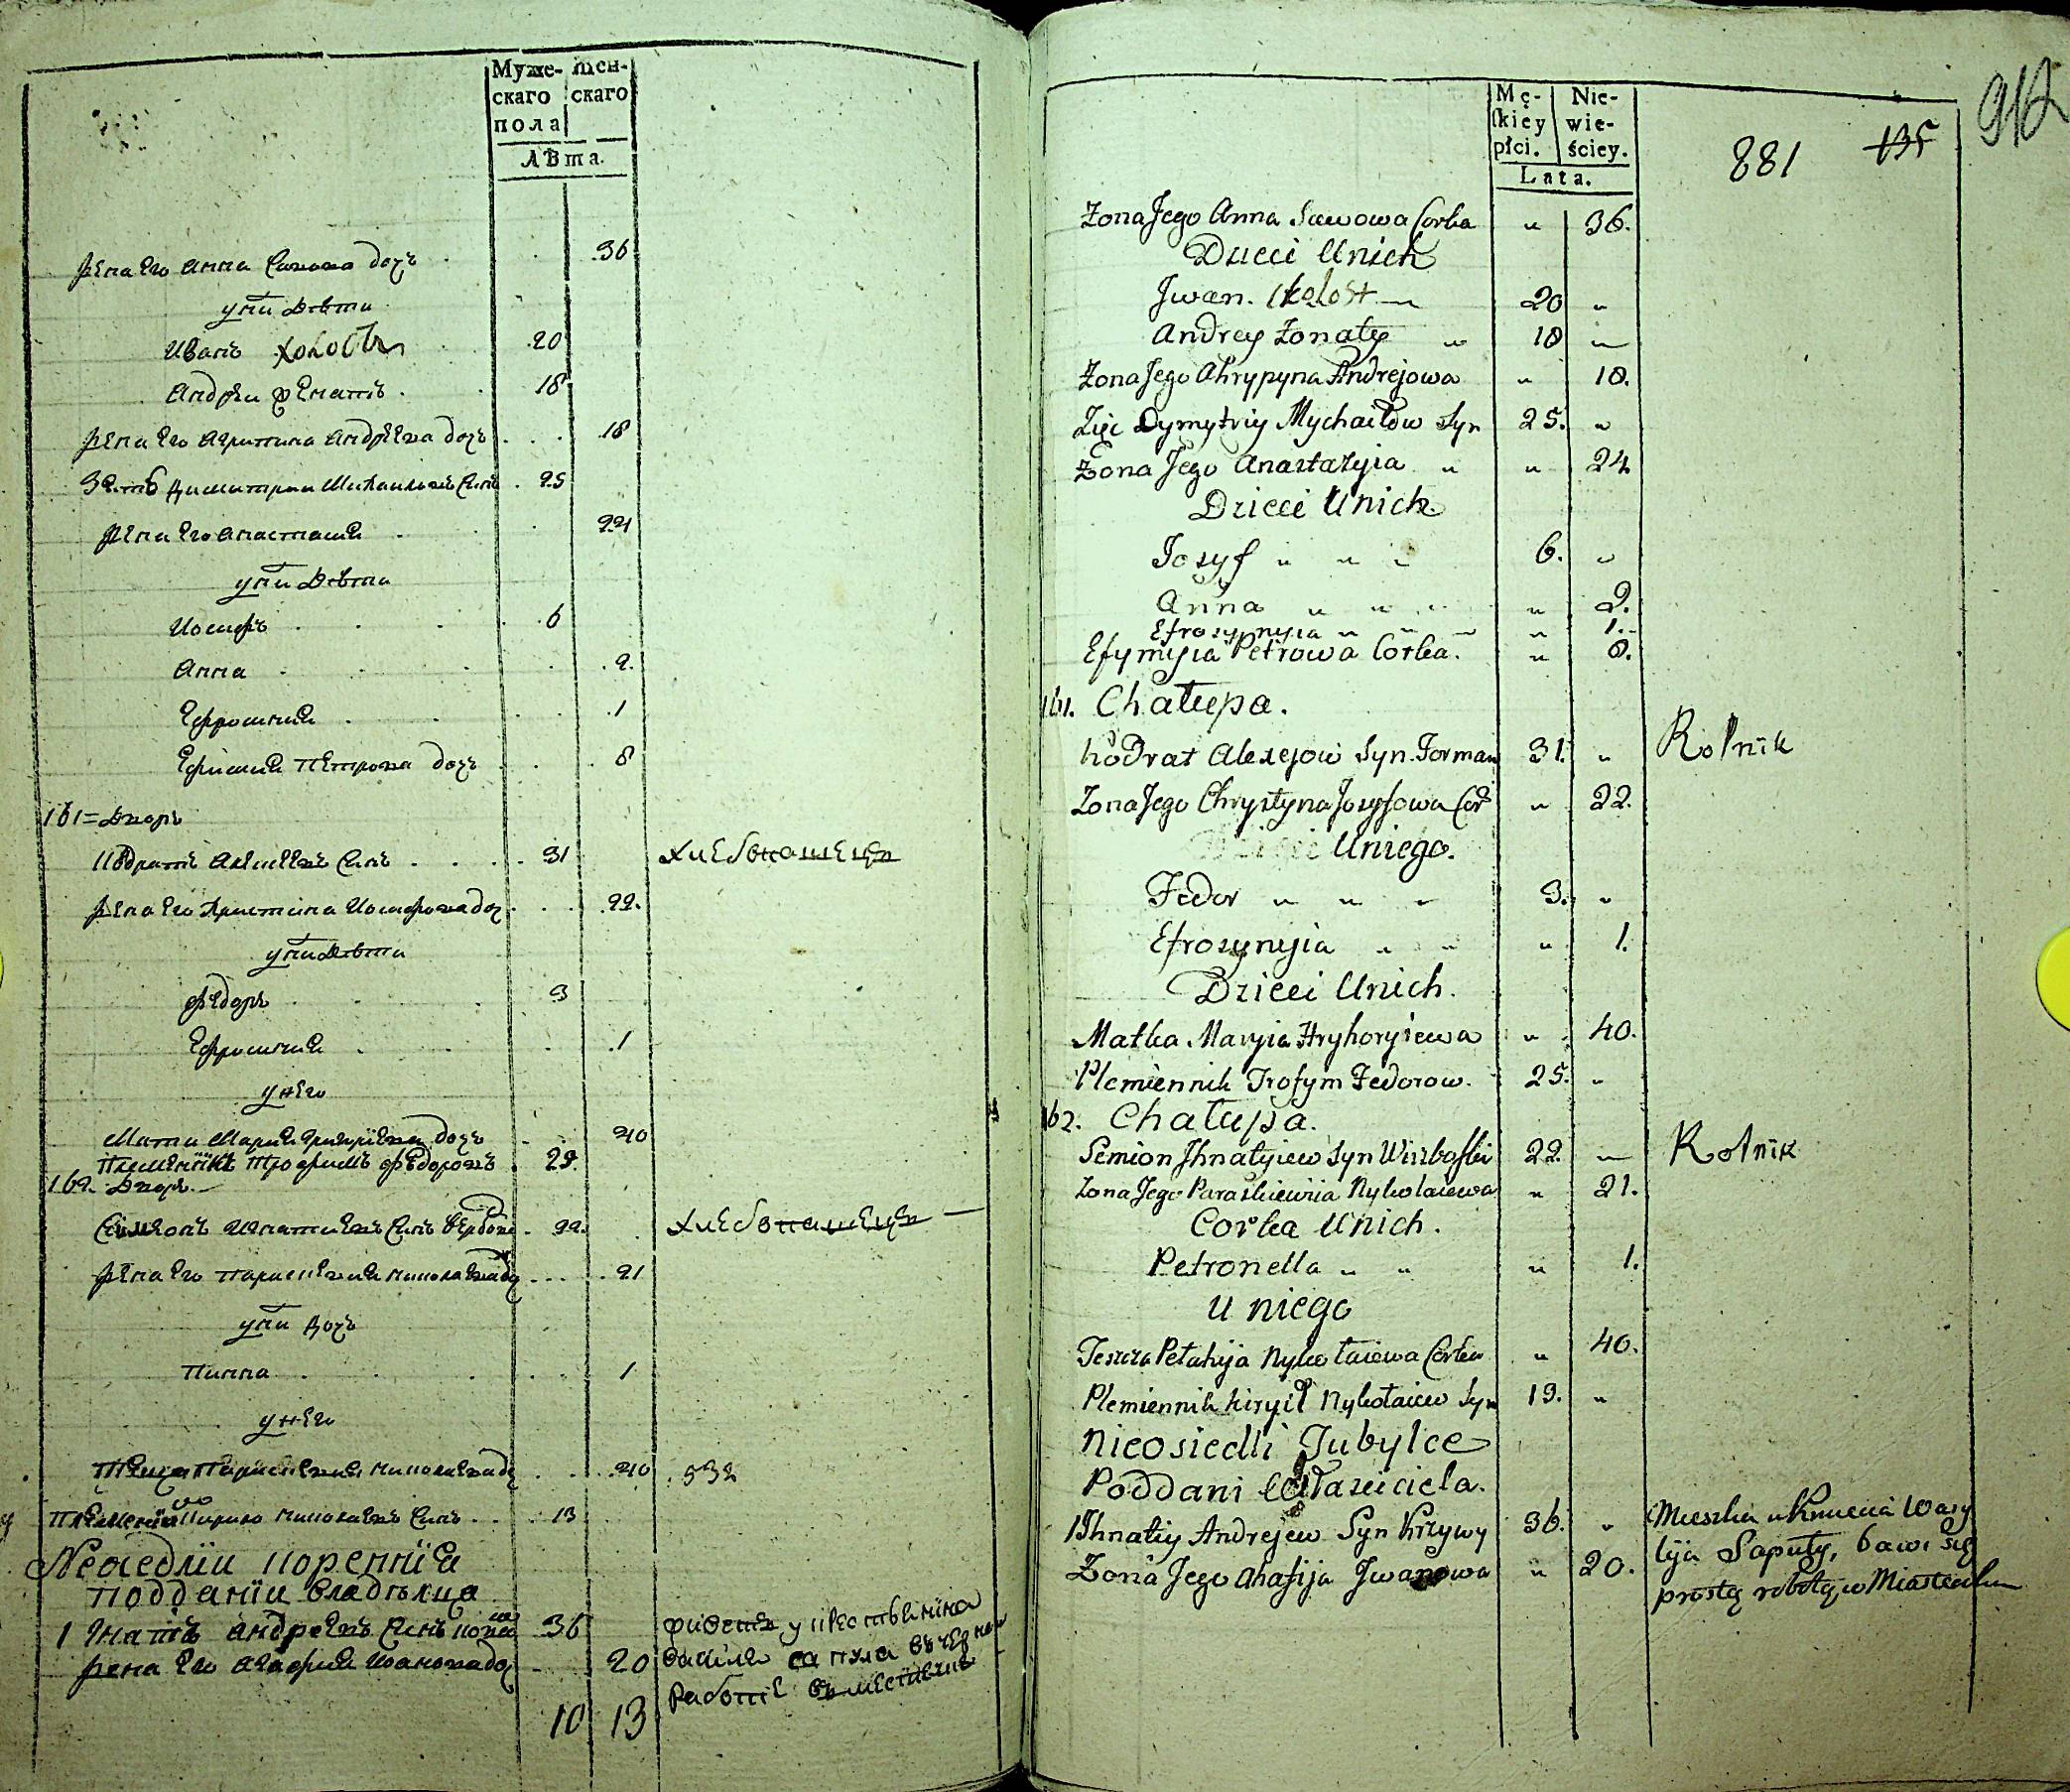 Муже- жен-
скаго скаго
пола
лѣта.
жена его Анна Савова дочъ 36
у них дѣти
Иванъ холостъ 20
Андреи женатъ 18
жена его Агрипина Андрѣева дочъ 18
Зять Димитрии Михаиловъ сынъ 25
жена его Анастасия 24
у них дѣти
Иосифъ 6
Анна 2.
Ефросиния 1
Ефимия Петрова дочъ 8
161 = Дворъ
Кодратъ Алексѣевъ сынъ 31 хлебопашецъ
жена его Христина Иосифова доч 22.
у них дѣти
Федоръ 3
Ефросиния 1
у него
Мати Мария Григориева дочъ 40
Племѣнникъ Трофимъ Федоровъ 25.
162. Дворъ
Симеонъ Игнатиевъ сынъ 22. хлебопашецъ
жена его Параскевия Николаева доч 21
у них дочъ
1
у него
Теща Параскевия Николаева доч 40 532
Племенникъ Кирило Николаевъ сынъ 13
Неоседлии коренния
поддании владѣлца
1 Игнатъ Андреевъ сынъ 36 у крестьянина
жена его Агафия Иванова доч 20 Василя Сапула в чорной
работе в местечке
10 13
Mę- Nie-
ſkiey wie-
płci. ściey.
Lata.
881 135 912
Żona Jego Anna Sawowa Corka " 36.
Dzieci Unich
Jwan. 20 "
Andrey Żonaty " 18 "
Żona Jego Ahrypyna Andrejowa " 18.
Zięć Dymytriy Mychaiłow Syn 25. "
Żona Jego Anastazyia " " 24
Dzieci Unich
Josyf " " " 6. "
Anna " " " " 2.
Efrosynyia " " " " 1.
Efymyia Petrowa Corka. " 8.
161. Chałupa.
Kodrat Alexejow Syn Forman 31. " Rolnik
Żona Jego Chrystyna Josyfowa Cor " 22.
Dzieci Uniego.
Fedor " " " 3. "
Efrosynyia " " " 1.
Dzieci Unich.
Matka Maryia Hryhoryiewa " 40.
Plemiennik Trofym Fedorow. 25. "
162. Chałupa.
Semion Jhnatyiew Syn 22. " Rolnik
Żona Jego Paraskiewiia Nykołaiewa " 21.
Corka Unich.
Petronella " " " 1.
U niego
Teszcza Pelahija Nykołaiewa Corka " 40.
Plemiennik Kirylł Nykołaiew Syn 13. "
Nieosiedli Tubylce
Poddani Własciciela.
1 Jhnatiy Andrejew Syn Krzywy 36. " Mieszka u Kmiecia Wasy
Żona Jego Ahafija Jwanowa " 20. lyia Saputy, bawi się
prostą robotą w Miasteczku